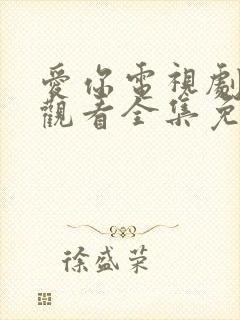 愛你電視劇
觀看全集免
徐盛荣